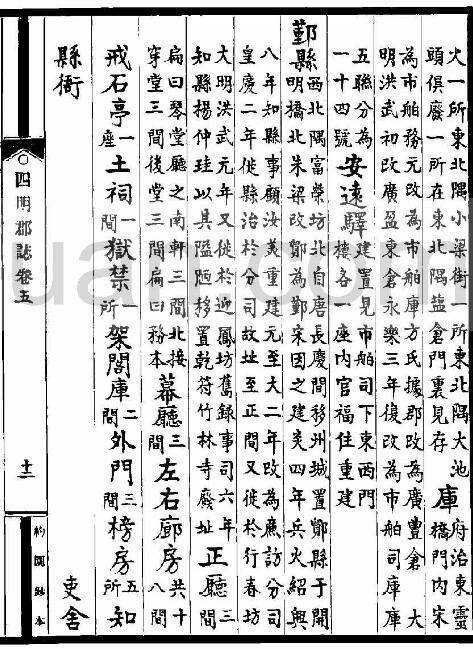 火一所東北隅小梁街一所東北隅大池
頭俱廢一所在東北隅鹽倉門裏見存
庫
府治東靈
橋門內宋
為市舶務元改為市舶庫方氏據郡改為廣豐倉 大
明洪武初改廣盈東倉永樂三年復改為市舶司庫庫
五聯分為
一十四號
安遠驛
建置見市舶司下東西門
樓各一座內官福住重建
鄞縣
西北隅富榮坊北自唐長慶間移州城置鄮縣于開
明橋北朱梁改鄮為鄞宋因之建炎四年兵火紹興
八年知縣事顧汝美重建元至大二年改為廉訪分司
皇慶二年徙縣治於分司故址至正間又徙於行春坊
大明洪武元年又徙於迎鳳坊舊錄事司六年
知縣楊仲珪以其隘陋移置乾符竹林寺廢址
正廳
三間
扁曰琴堂廳之南軒三間北接
穿堂三間後堂三間扁曰務本
幕廳
三間
左右廊房
共十
八間
戒石亭一座土祠一間獄禁一所架閣庫二間外門三間榜房五所知
縣衙 吏舍
四明郡誌卷五
十二
約園鈔本